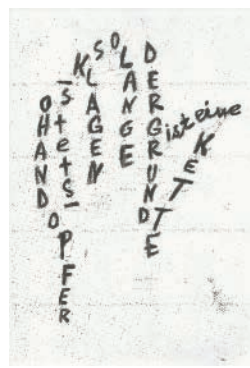 OHAND
OPFER
|stets|
KLAGEN
SO
LANGE
DERGRUND
ist eine
KETTE